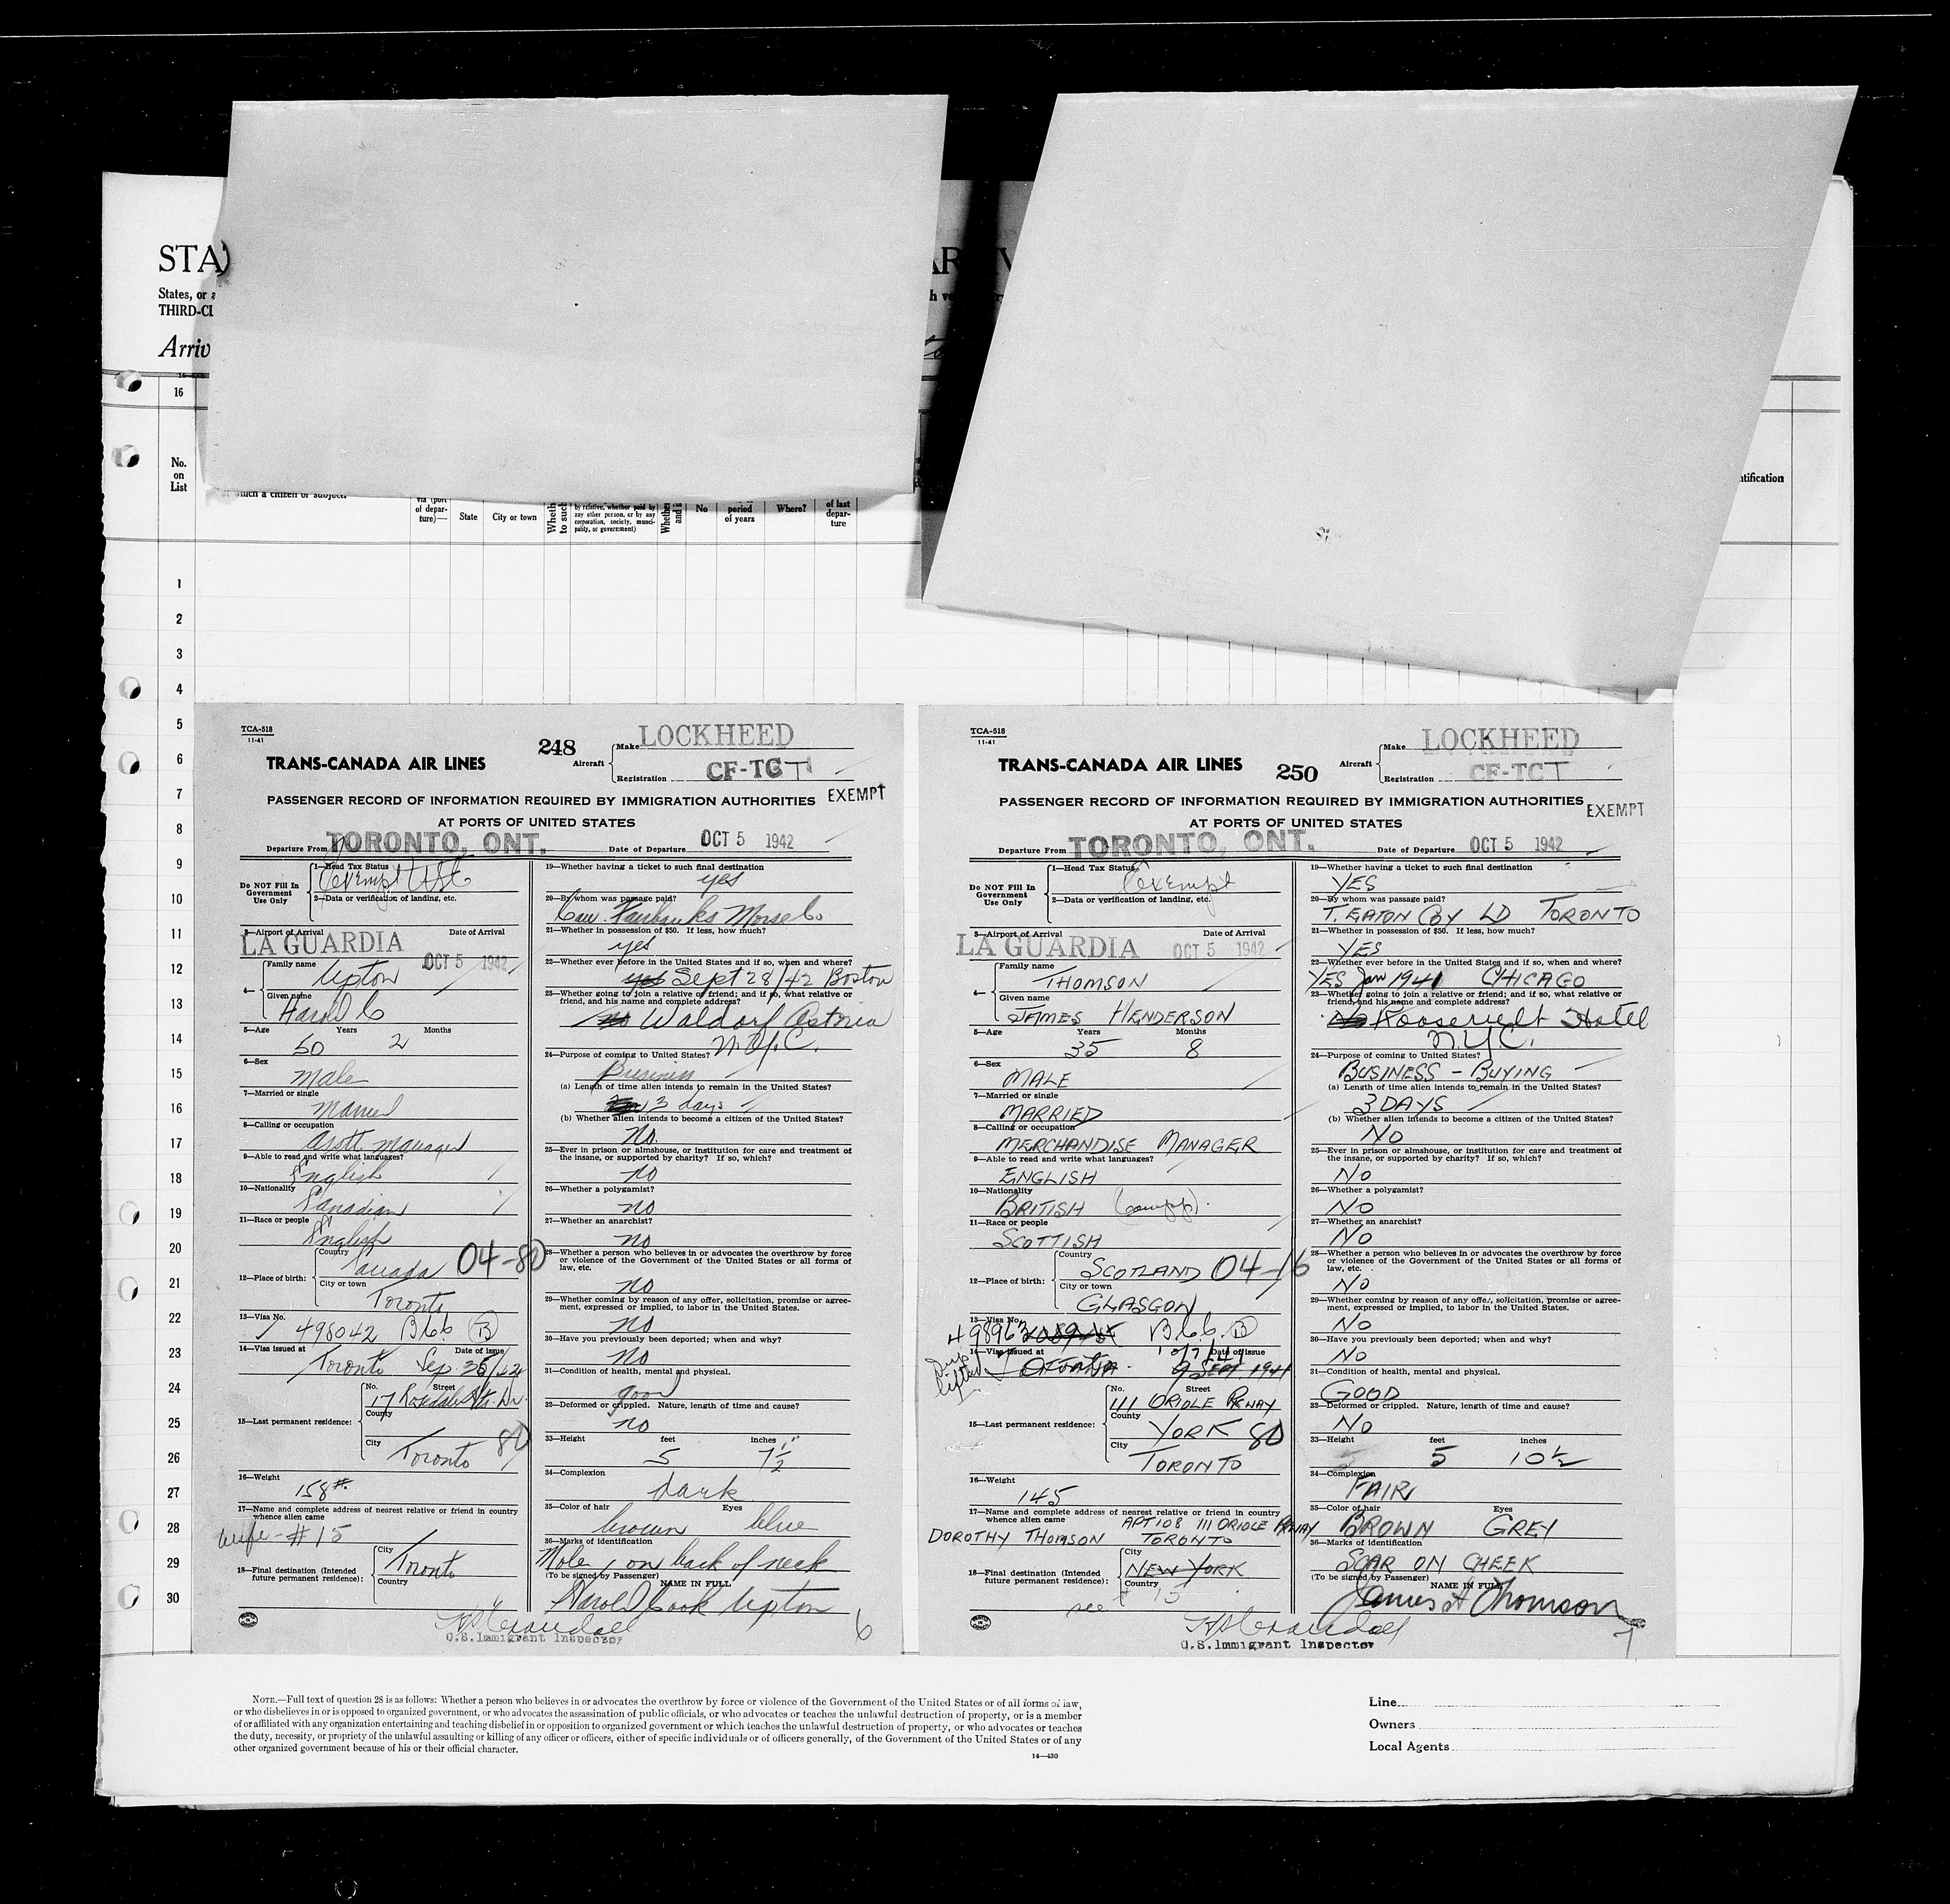 STA
States, or
THIRD-CL
Arriv
16
No.
on
List
which a citizen or subject.
via (port
of depar-
ture)—
State
City or town
by relative, whether paid by
any other person, or by any
corporation, society, munici-
pality, or government)
No
period
of years
Where?
of last
depar-
ture
ntification
1
2
3
4
5
6
7
8
9
10
11
12
13
14
15
16
17
18
19
20
21
22
23
24
25
26
27
28
29
30
TCA-518
11-41
248
TRANS-CANADA AIR LINES
Aircraft
Make LOCKHEED
Registration CF-TCT
PASSENGER RECORD OF INFORMATION REQUIRED BY IMMIGRATION AUTHORITIES
EXEMPT
AT PORTS OF UNITED STATES
Departure From TORONTO, ONT. Date of Departure OCT 5 1942
Do NOT Fill In
Government
Use Only
1—Head Tax Status
Exempt
2—Data or verification of landing, etc.
3—Airport of Arrival Date of Arrival
LA GUARDIA OCT 5 1942
4— Family name
Upton
Given name
Harold C
5—Age Years Months
50 2
6—Sex
Male
7—Married or single
Married
8—Calling or occupation
Asst. Manager
9—Able to read and write what languages?
English
10—Nationality
Canadian
11—Race or people
English
12—Place of birth:
Country
Canada 04-80
City or town
Toronto
13—Visa No.
498042 B66 B
14—Visa issued at Date of issue
Toronto Sep.
15—Last permanent residence:
No. Street
17
County
City
Toronto 80
16—Weight
158#
17—Name and complete address of nearest relative or friend in country
whence alien came
wife - #15
18—Final destination (Intended
future permanent residence):
City
Toronto
Country
19—Whether having a ticket to such final destination
yes
20—By whom was passage paid?
Can. Fairbanks Morse Co.
21—Whether in possession of $50. If less, how much?
yes
22—Whether ever before in the United States and if so, when and where?
yes Sept 28/42 Boston
23—Whether going to join a relative or friend; and if so, what relative or
friend, and his name and complete address?
no Waldorf Astoria
N.Y.C.
24—Purpose of coming to United States?
Business
(a) Length of time alien intends to remain in the United States?
3 days
(b) Whether alien intends to become a citizen of the United States?
No.
25—Ever in prison or almshouse, or institution for care and treatment of
the insane, or supported by charity? If so, which?
no
26—Whether a polygamist?
no
27—Whether an anarchist?
no
28—Whether a person who believes in or advocates the overthrow by force
or violence of the Government of the United States or all forms of
law, etc.
no
29—Whether coming by reason of any offer, solicitation, promise or agree-
ment, expressed or implied, to labor in the United States.
no
30—Have you previously been deported; when and why?
no
31—Condition of health, mental and physical.
good
32—Deformed or crippled. Nature, length of time and cause?
no
33—Height feet inches
5 7½
34—Complexion
dark
35—Color of hair Eyes
brown blue
36—Marks of identification
Mole, on back of neck
(To be signed by Passenger) NAME IN FULL
Harold Cook Upton
H.S. Crandall
U.S. Immigrant Inspector
6
TCA-518
11-41
TRANS-CANADA AIR LINES
250
Aircraft
Make LOCKHEED
Registration CF-TCT
PASSENGER RECORD OF INFORMATION REQUIRED BY IMMIGRATION AUTHORITIES
EXEMPT
AT PORTS OF UNITED STATES
Departure From TORONTO, ONT. Date of Departure OCT 5 1942
Do NOT Fill In
Government
Use Only
1—Head Tax Status
Exempt
2—Data or verification of landing, etc.
3—Airport of Arrival Date of Arrival
LA GUARDIA OCT 5 1942
4— Family name
THOMSON
Given name
JAMES HENDERSON
5—Age Years Months
35 8
6—Sex
MALE
7—Married or single
MARRIED
8—Calling or occupation
MERCHANDISE MANAGER
9—Able to read and write what languages?
ENGLISH
10—Nationality
BRITISH
11—Race or people
SCOTTISH
12—Place of birth:
Country
SCOTLAND 04-16
City or town
GLASGOW
13—Visa No.
498963 B.C.C. B
14—Visa issued at Date of issue
OTTAWA 9 SEPT. 1941
15—Last permanent residence:
No. Street
111 ORIOLE PKWAY
County
YORK 80
City
TORONTO
16—Weight
145
17—Name and complete address of nearest relative or friend in country
whence alien came APT 108 111 ORIOLE PKWAY
DOROTHY THOMSON TORONTO
18—Final destination (Intended
future permanent residence):
City
NEW YORK
Country
see # 15
19—Whether having a ticket to such final destination
YES
20—By whom was passage paid?
T. EATON COY LD TORONTO
21—Whether in possession of $50. If less, how much?
YES
22—Whether ever before in the United States and if so, when and where?
YES Jan 1941 CHICAGO
23—Whether going to join a relative or friend; and if so, what relative or
friend, and his name and complete address?
No Roosevelt Hotel
N.Y.C.
24—Purpose of coming to United States?
BUSINESS - BUYING
(a) Length of time alien intends to remain in the United States?
3 DAYS
(b) Whether alien intends to become a citizen of the United States?
NO
25—Ever in prison or almshouse, or institution for care and treatment of
the insane, or supported by charity? If so, which?
NO
26—Whether a polygamist?
NO
27—Whether an anarchist?
NO
28—Whether a person who believes in or advocates the overthrow by force
or violence of the Government of the United States or all forms of
law, etc.
NO
29—Whether coming by reason of any offer, solicitation, promise or agree-
ment, expressed or implied, to labor in the United States.
NO
30—Have you previously been deported; when and why?
NO
31—Condition of health, mental and physical.
GOOD
32—Deformed or crippled. Nature, length of time and cause?
NO
33—Height feet inches
5 10½
34—Complexion
FAIR
35—Color of hair Eyes
BROWN GREY
36—Marks of identification
SCAR ON CHEEK
(To be signed by Passenger) NAME IN FULL
James H Thomson
H.S. Crandall
U.S. Immigrant Inspector
7
NOTE.—Full text of question 28 is as follows: Whether a person who believes in or advocates the overthrow by force or violence of the Government of the United States or of all forms of law,
or who disbelieves in or is opposed to organized government, or who advocates the assassination of public officials, or who advocates or teaches the unlawful destruction of property, or is a member
of or affiliated with any organization entertaining and teaching disbelief in or opposition to organized government or which teaches the unlawful destruction of property, or who advocates or teaches
the duty, necessity, or propriety of the unlawful assaulting or killing of any officer or officers, either of specific individuals or of officers generally, of the Government of the United States or of any
other organized government because of his or their official character.
14—430
Line
Owners
Local Agents